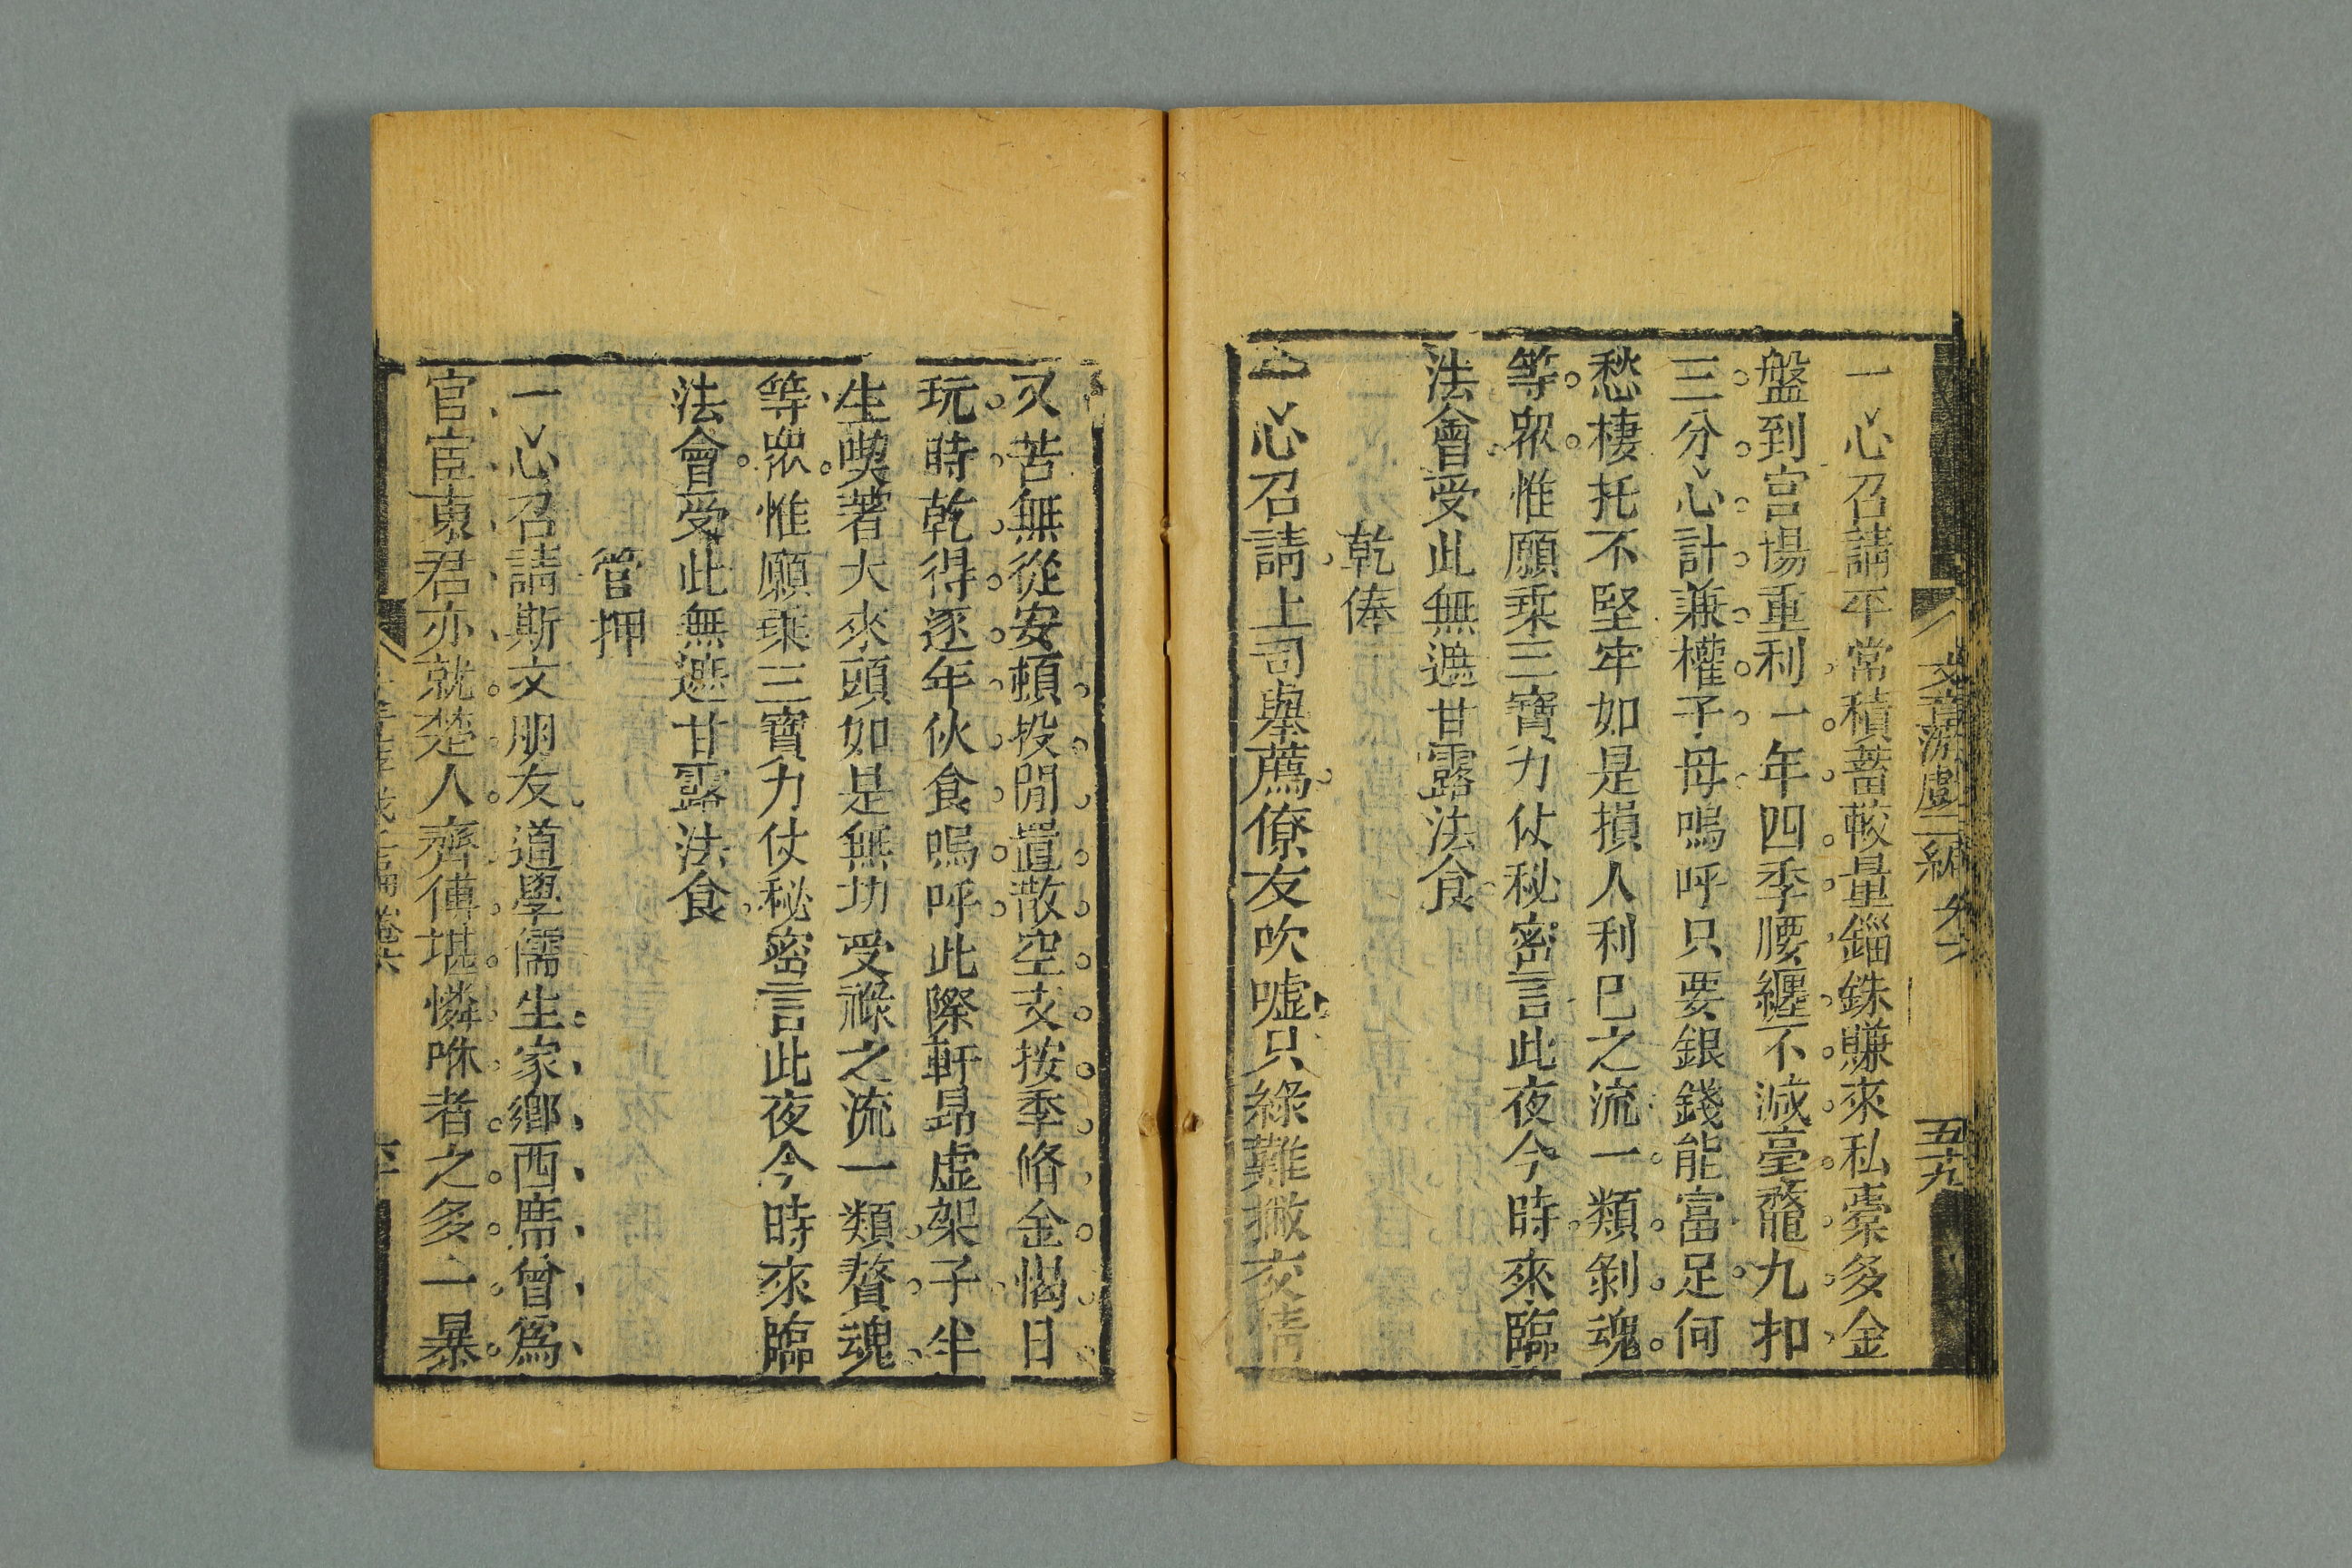 一心召請平常積蓄較量錙銖賺來私橐多金
盤到宮場重利一年四季腰纏不減毫釐九扣
三分心計兼權子母嗚呼只要銀錢能富足何
愁棲托不堅牢如是損人利己之流一類剝魂
等眾惟願乘三寶力仗秘密言此夜今時來臨
法會受此無遮甘露法食
乾俸
一心召請上司舉薦僚友吹噓只緣難撇交情
又苦無從安頓投閒置散空支按季脩金愒日
玩時乾得逐年伙食嗚呼此際軒昂虛架子半
生喫著大來頭如是無功受祿之流一類贅魂
等眾惟願乘三寶力仗秘密言此夜今時來臨
法會受此無遮甘露法食
管押
一心召請斯文朋友道學儒生家鄉西席曾為
官宦東君亦就楚人齊傅堪憐咻者之多一暴
五十九